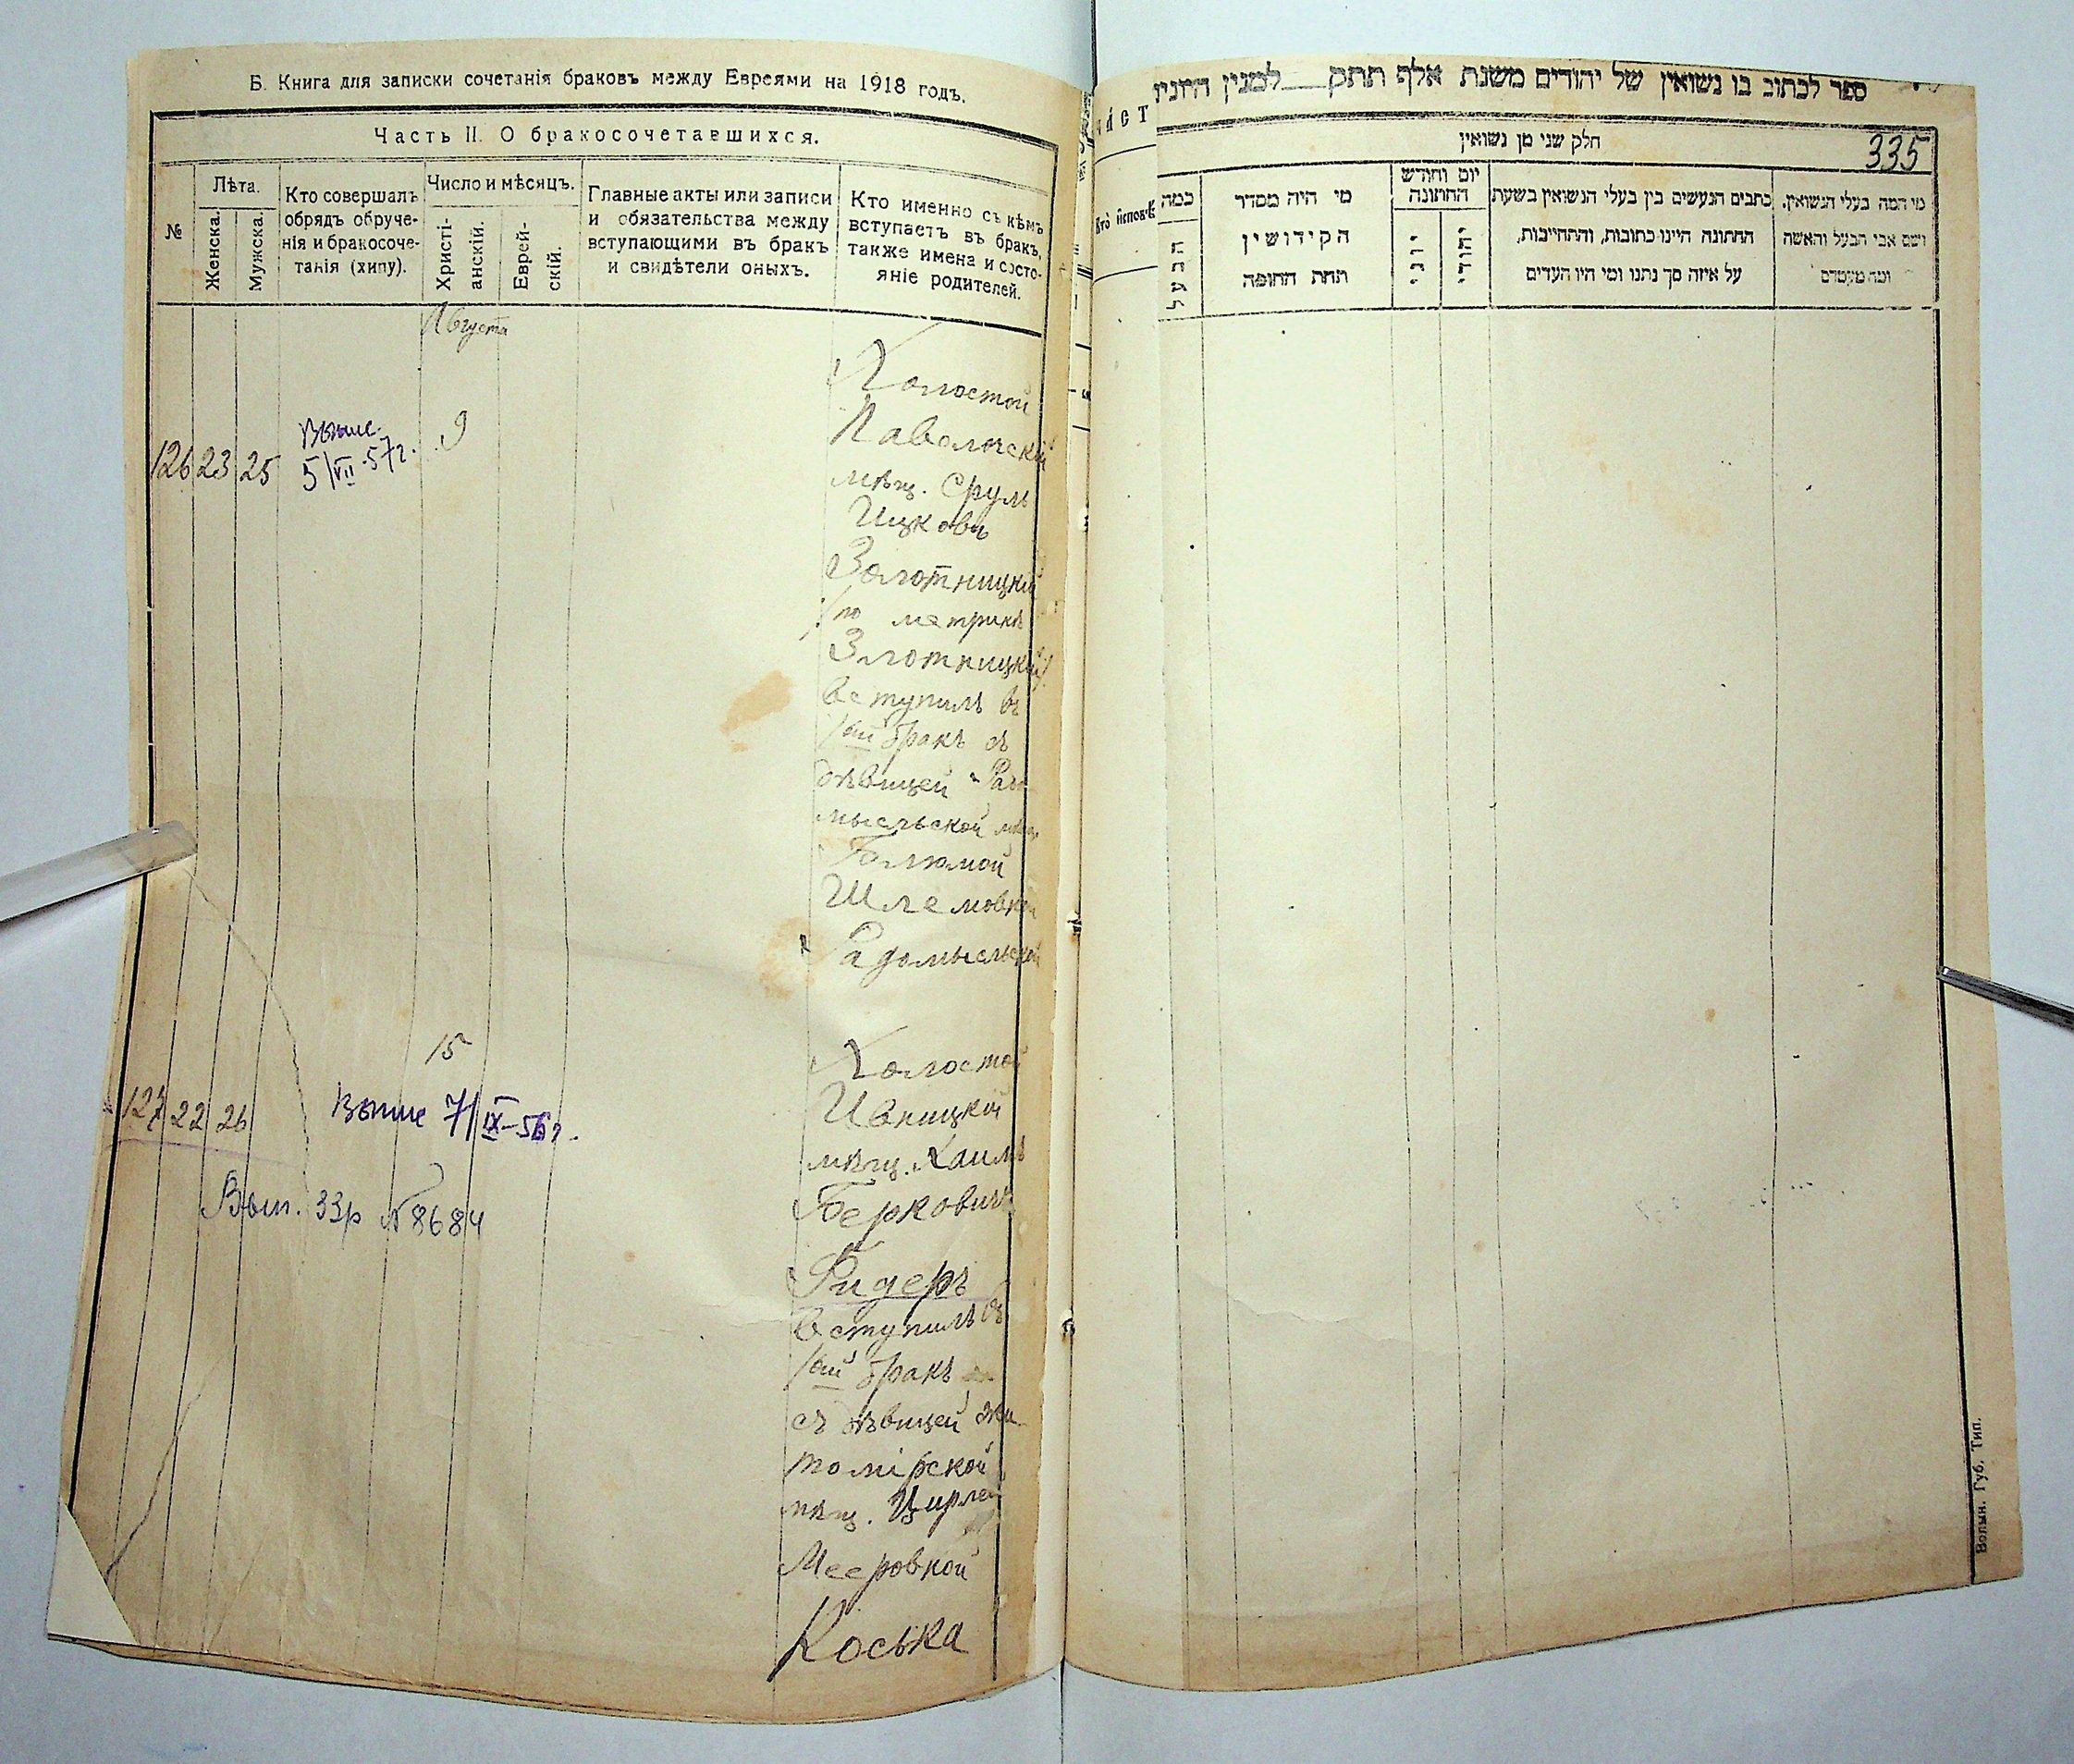 Б. Книга для записки сочетанія браковъ между Евреями на 1918 годъ.
Часть II. О бракосочетавшихся.
№
Лѣта.
Женска.
Мужска.
Кто совершалъ
обрядъ обруче-
нія и бракосоче-
танія (хипу).
Число и мѣсяцъ.
Христі-
анскій.
Еврей-
скій.
Главные акты или записи
и обязательства между
вступающими въ бракъ
и свидѣтели оныхъ.
Кто именно съ кѣмъ
вступаетъ въ бракъ,
также имена и состо-
яніе родителей.
Августа
126 23 25
Выпис.
5/VII-57г.
9
Холостой
Паволочскій
мѣщ. Сруль
Ицковъ
Золотницкій
/по метрикѣ
Злотницкій/
вступилъ въ
1ый бракъ съ
дѣвицей Радо
мысльской мѣщ.
Блюмой
Шлемовной
Радомысльской
15
127 22 26
Выпис 7/IX-56г.
Вып. 33р № 8684
Холостой
Ивницкій
мѣщ. Хаимъ
Берковичъ
Ридеръ
вступилъ въ
1ый бракъ
съ дѣвицей Жи
томірской
мѣщ. Цирлей
Мееровной
Коська
ספר לכתוב בו נשואין של יהודים משנת אלף תתק למנין היוני
חלק שני מן נשואין
335
כמה
הבעל
מי היה מסדר
הקידושין
תחת החופה
יום וחודש
החתונה
יוני
יהודי
כתבים הנעשים בין בעלי הנשואין בשעת
החתונה היינו כתובות, והתחייבות,
על איזה סך נתנו ומי היו העדים
מי המה בעלי הנשואין,
ושם אבי הבעל והאשה
ומה מעמדם
Волын. Губ. Тип.